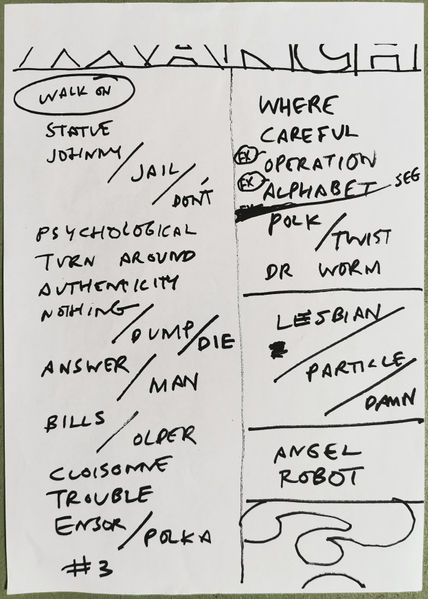 WALK ON
STATUE
JOHNNY/JAIL/DON'T
PSYCHOLOGICAL
TURN AROUND
AUTHENTICITY
NOTHING/DUMP/DIE
ANSWER/MAN
BILLS/OLDER
CLOISONNE
TROUBLE
ENSOR/POLKA
#3
WHERE
CAREFUL
EX OPERATION
EX ALPHABET SEG
POLK/TWIST
DR WORM
LESBIAN/PARTICLE/DAMN
ANGEL
ROBOT